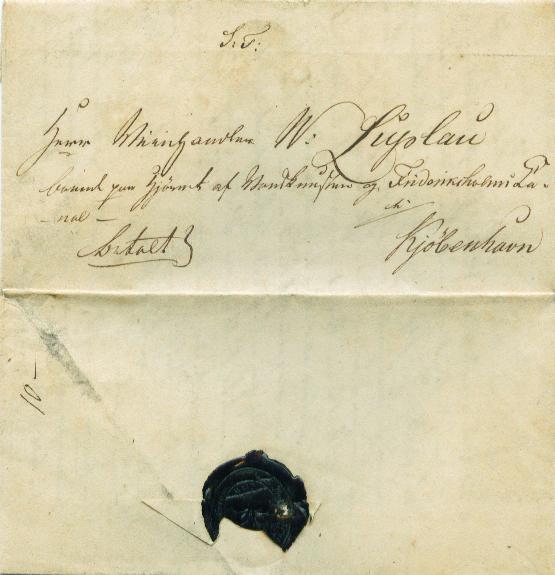 S: T:
Herr Viinhandler W: Luplau
boende paa Hjörnet af Vandkunsten og Frideriksholms Ca-
nal —
betalt
Kjöbenhavn
10 —